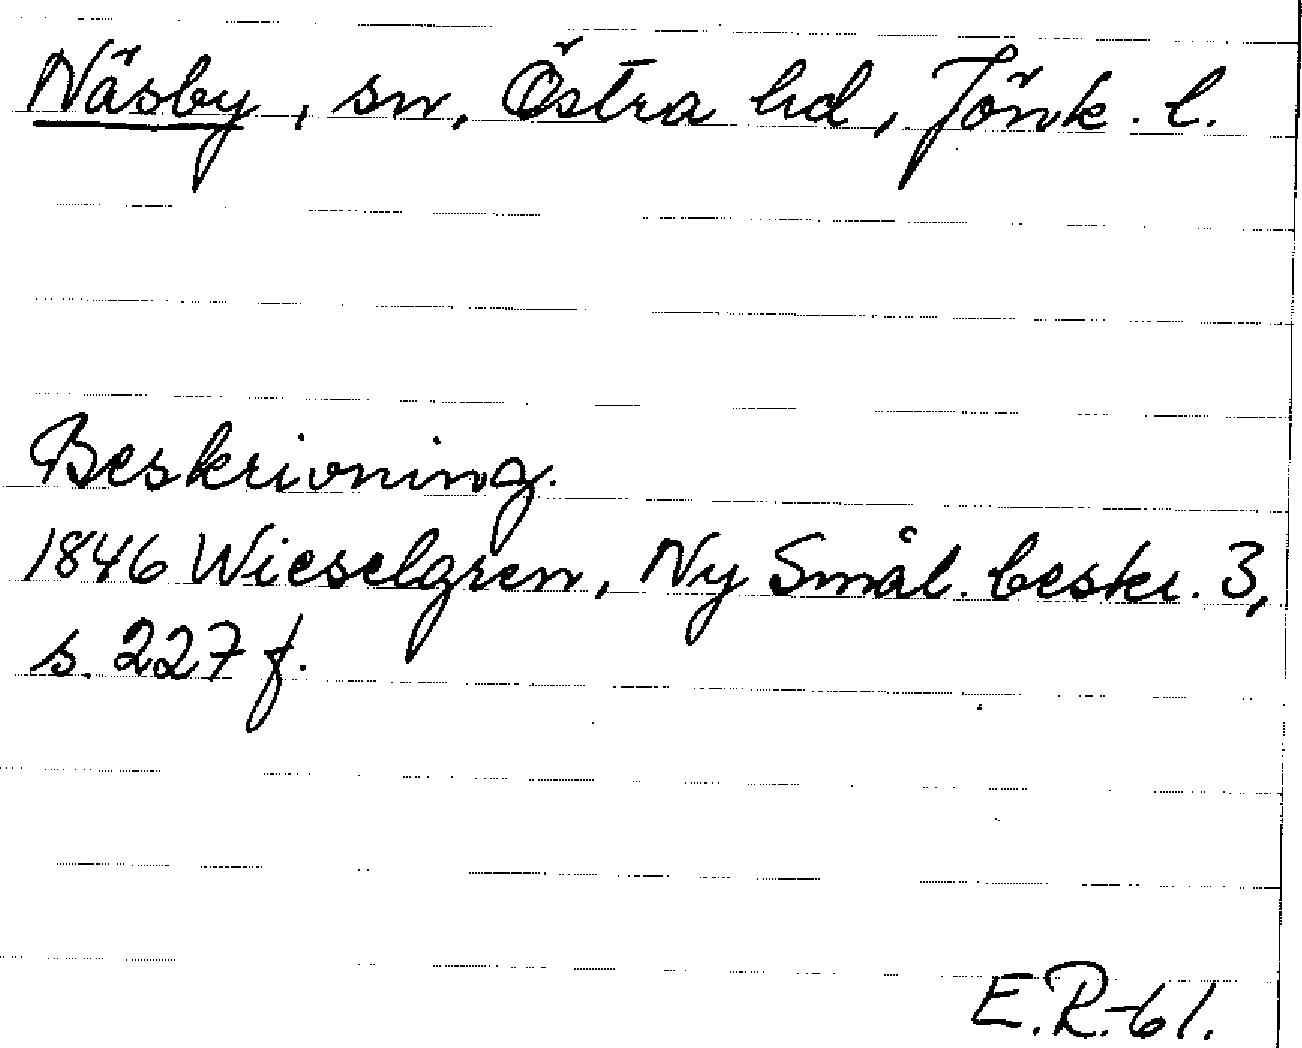 Näsby, sn, Östra hd, Jönk. l.
Beskrivning.
1846 Wieselgren, Ny Smål. beskr. 3,
s. 227 f.
E.R.-61.